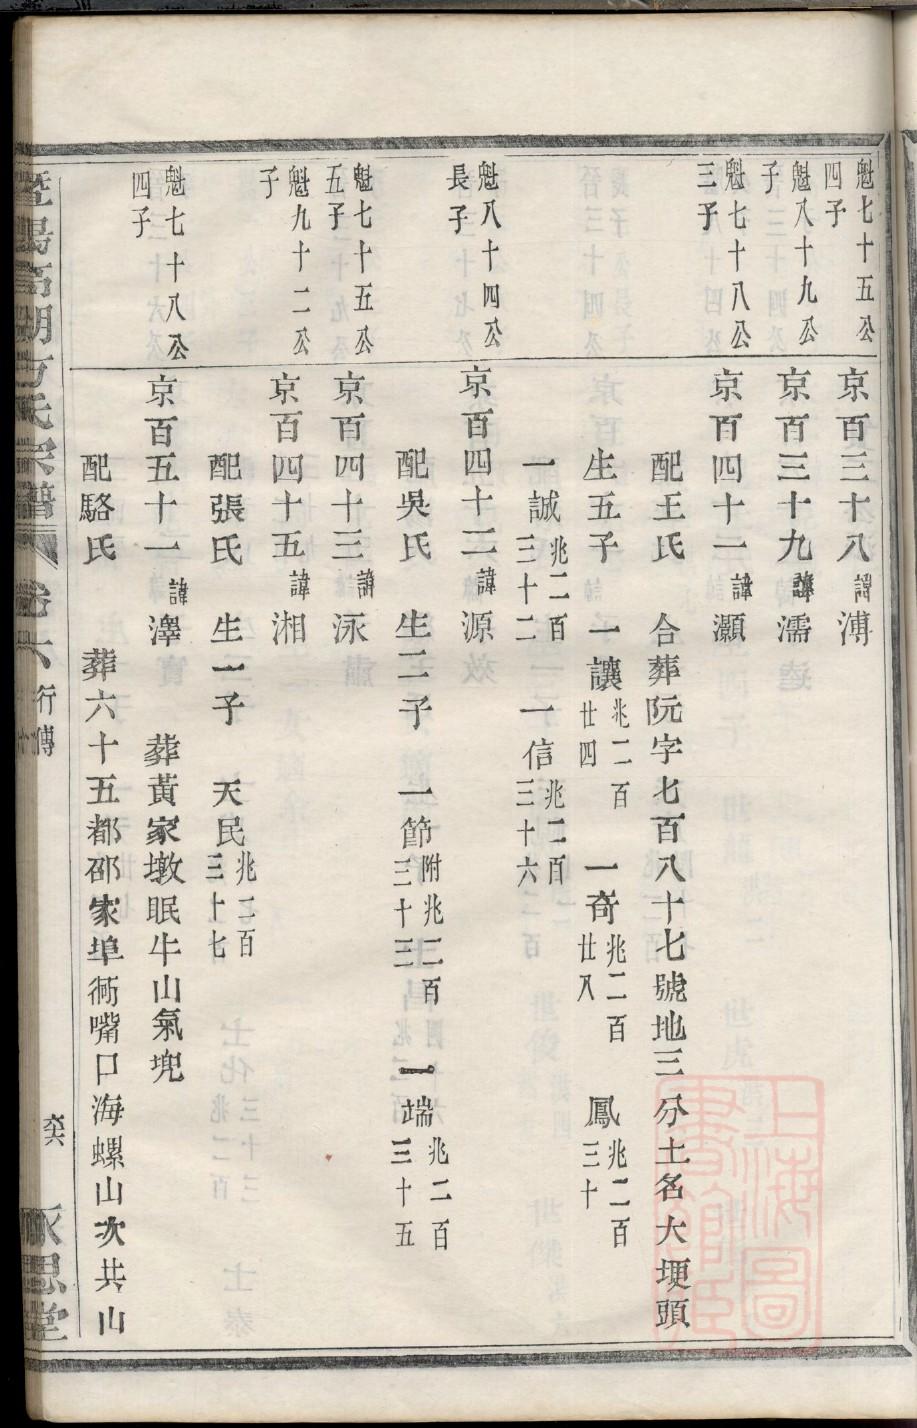 魁七十五公
四子
京百三十八諱溥
魁八十九公
子
京百三十九諱濡
魁七十八公
三子
京百四十一諱灝
配王氏 合葬阮字七百八十七號地三分土名大埂頭
生五子 一讓兆二百廿四 一奇兆二百廿八 鳳兆二百三十
一誠兆二百三十二 一信兆二百三十六
魁八十四公
長子
京百四十二諱源
配吳氏 生二子 一節附兆二百三十三 一端兆二百三十五
魁七十五公
五子
京百四十三諱泳
魁九十二公
子
京百四十五諱湘
配張氏 生一子 天民兆二百三十七
魁七十八公
四子
京百五十一諱澤 葬黃家墩眠牛山氣兜
配駱氏 葬六十五都邵家埠衕嘴口海螺山次共山
暨陽高湖方氏宗譜 卷六 行傳
永思堂
上海圖書館藏